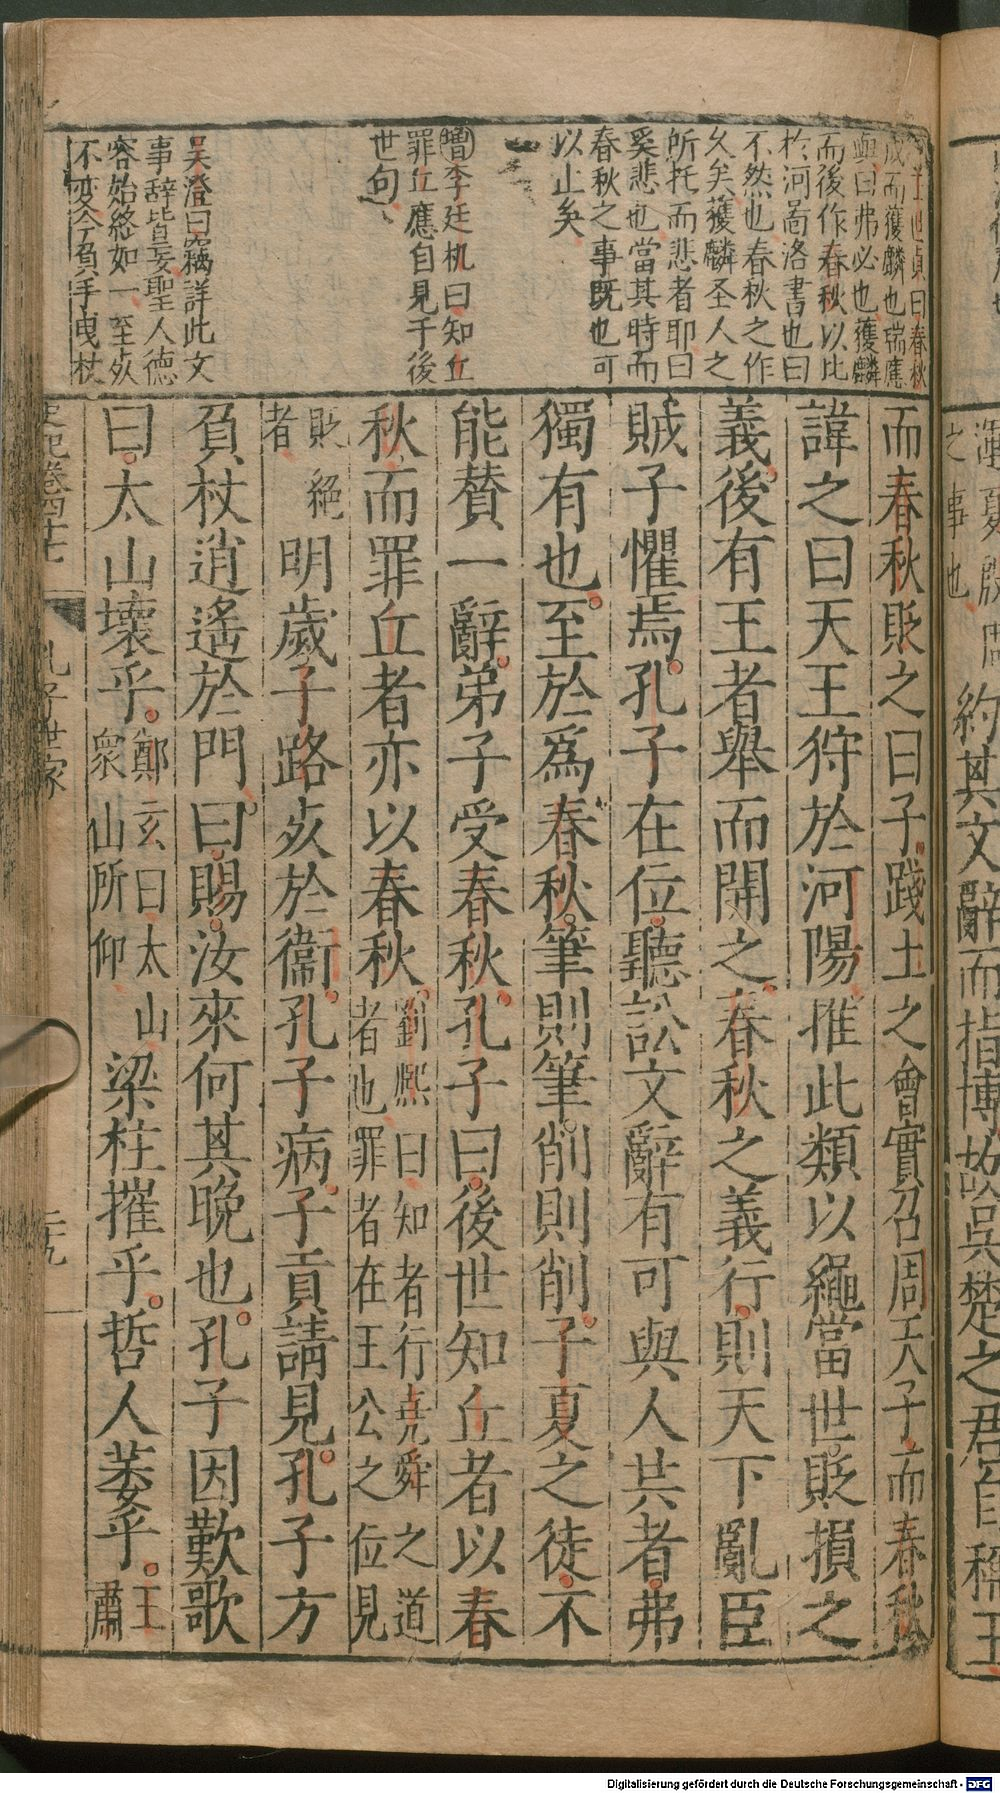 而春秋貶之曰子踐土之會實召周天子而春秋
諱之曰天王狩於河陽推此類以繩當世貶損之
義後有王者舉而開之春秋之義行則天下亂臣
賊子懼焉孔子在位聽訟文辭有可與人共者弗
獨有也至於爲春秋筆則筆削則削子夏之徒不
能賛一辭弟子受春秋孔子曰後世知丘者以春
秋而罪丘者亦以春秋劉熙曰知者行堯舜之道
者也罪者在王公之位見
貶絕
者
明歲子路死於衞孔子病子貢請見孔子方
負杖逍遙於門曰賜汝來何其晚也孔子因歎歌
曰太山壞乎鄭玄曰太山
衆山所仰
梁柱摧乎哲人萎乎王
肅
王世貞曰春秋
成而獲麟也瑞應
與曰弗必也獲麟
而後作春秋以比
於河啚洛書也曰
不然也春秋之作
久矣獲麟圣人之
所托而悲者耶曰
奚悲也當其時而
春秋之事既也可
以止矣
增李廷机曰知丘
罪丘應自見于後
世句
吴澄曰竊詳此文
事辭皆妄聖人德
容始終如一至死
不变今負手曳杖
史記卷四十七
孔子世家
二十九
之事也
約其文辭而指博故吳楚之君自稱王
Digitalisierung gefördert durch die Deutsche Forschungsgemeinschaft - DFG